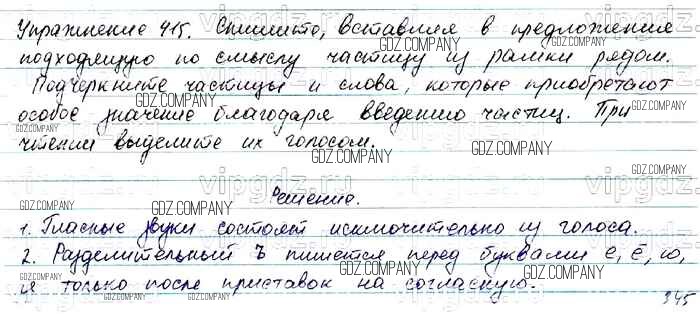 Упражнение 415. Спишите, вставляя в предложение
подходящую по смыслу частицу из рамки рядом.
Подчеркните частицы и слова, которые приобретают
особое значение благодаря введению частиц. При
чтении выделите их голосом.
Решение.
1. Гласные звуки состоят исключительно из голоса.
2. Разделительный ъ пишется перед буквами е, ё, ю,
я только после приставок на согласную.
345
GDZ.COMPANY
vipgdz.ru